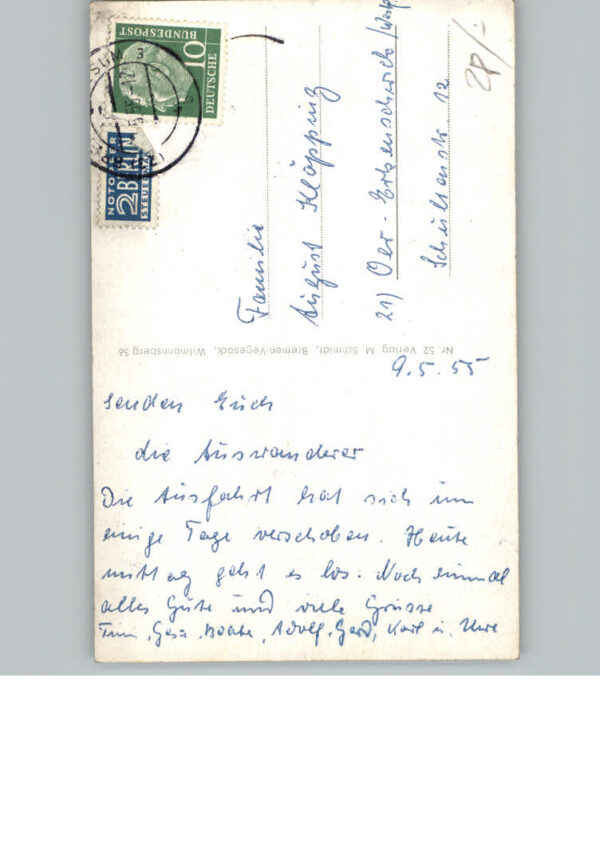 9.5.55
senden Euch
die Auswanderer
Die Ausfahrt hat sich um
einige Tage verschoben. Heute
mittag geht es los. Noch einmal
alles Gute und viele Grüsse
Adolf, Gerd, Karl u. Uwe
Familie
August Klöpping
21) Oer-Erkenschwick/Westf
Schultenstr. 12
Nr. 52 Verlag M. Schmidt, Bremen-Vegesack, Wilmannsberg 56
10
DEUTSCHE
BUNDESPOST
NOTOPFER
2 BERLIN
STEUERMARKE
28/-